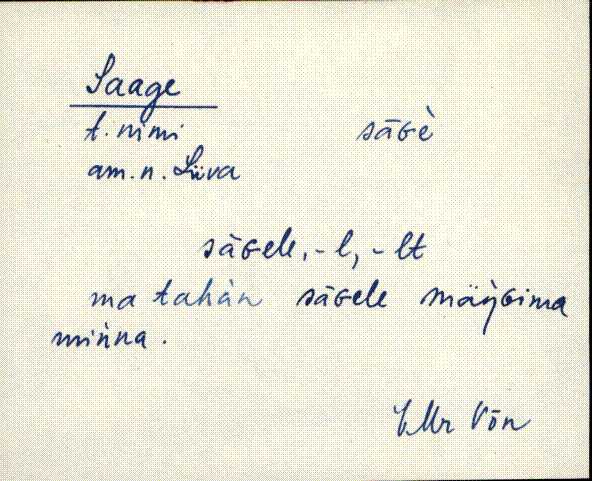 Saage
t. nimi sāɢè
am. n. Liiva
sāɢele, -l, -lt
ma tahàn sāɢele mäŋ̀ɢima
miǹna.
Mr Võn